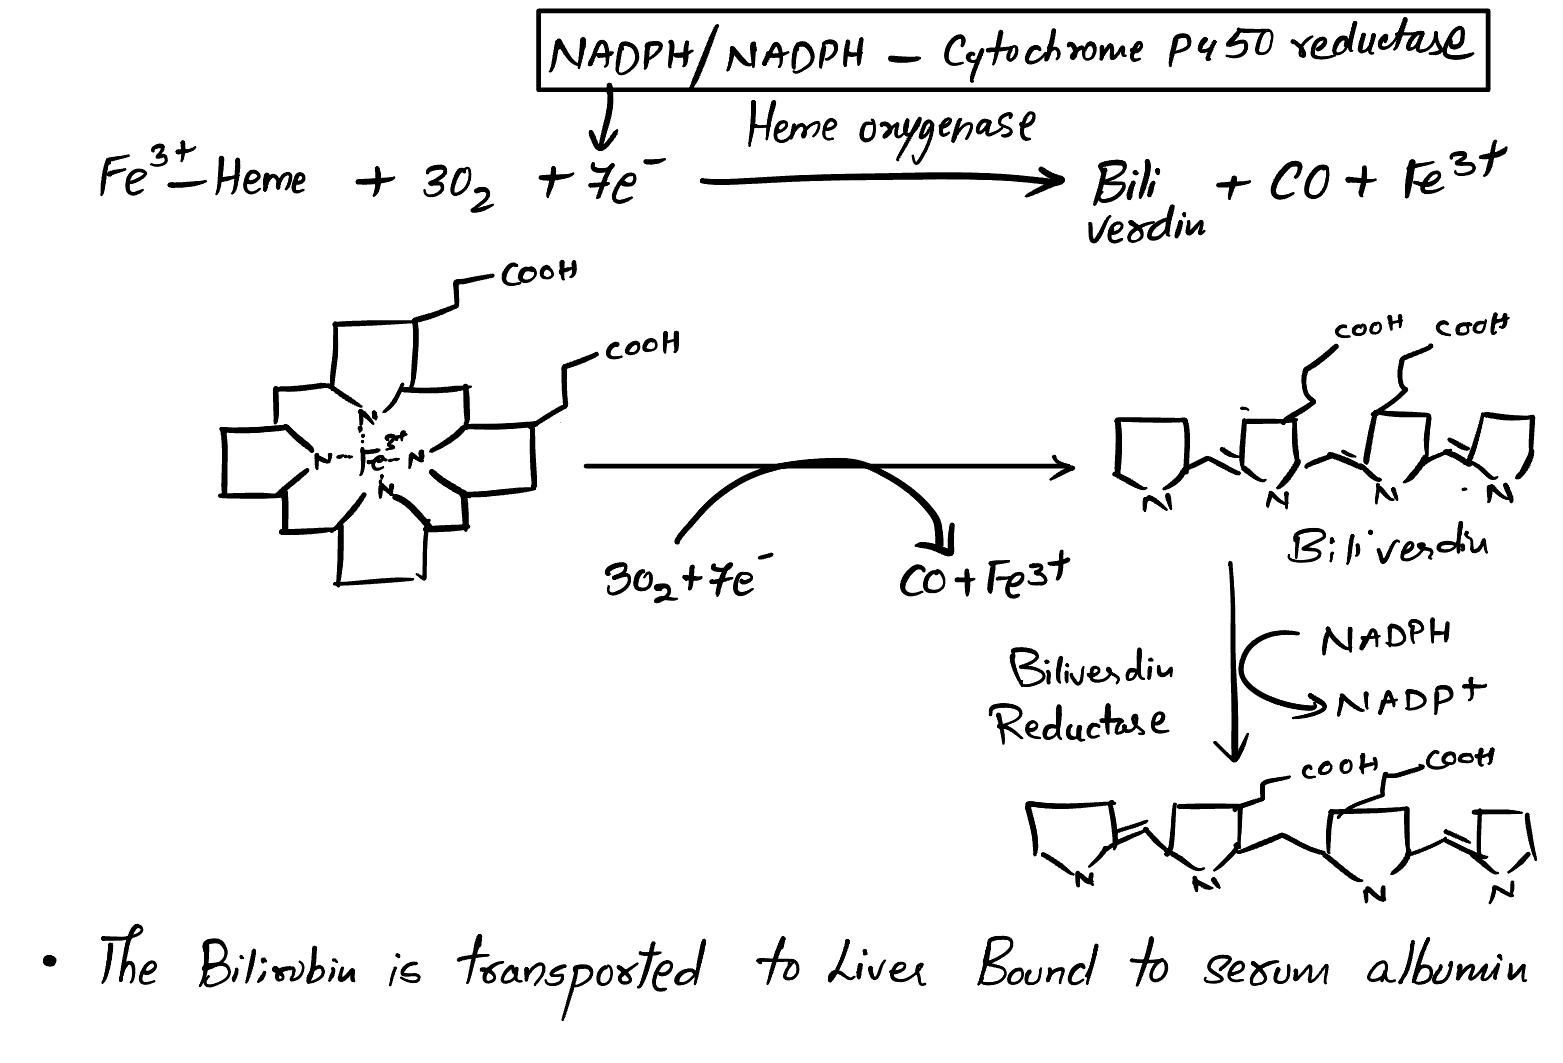 NADPH/NADPH – Cytochrome P450 reductase
Heme oxygenase
Fe³⁺–Heme + 3O₂ + 7e⁻ → Bili verdin + CO + Fe³⁺
COOH
COOH
N
N Fe³⁺ N
N
3O₂ + 7e⁻
CO + Fe3+
COOH COOH
N N N N
Biliverdin
Biliverdin
Reductase
NADPH
NADP+
COOH COOH
N N N N
• The Bilirubin is transported to Liver Bound to serum albumin